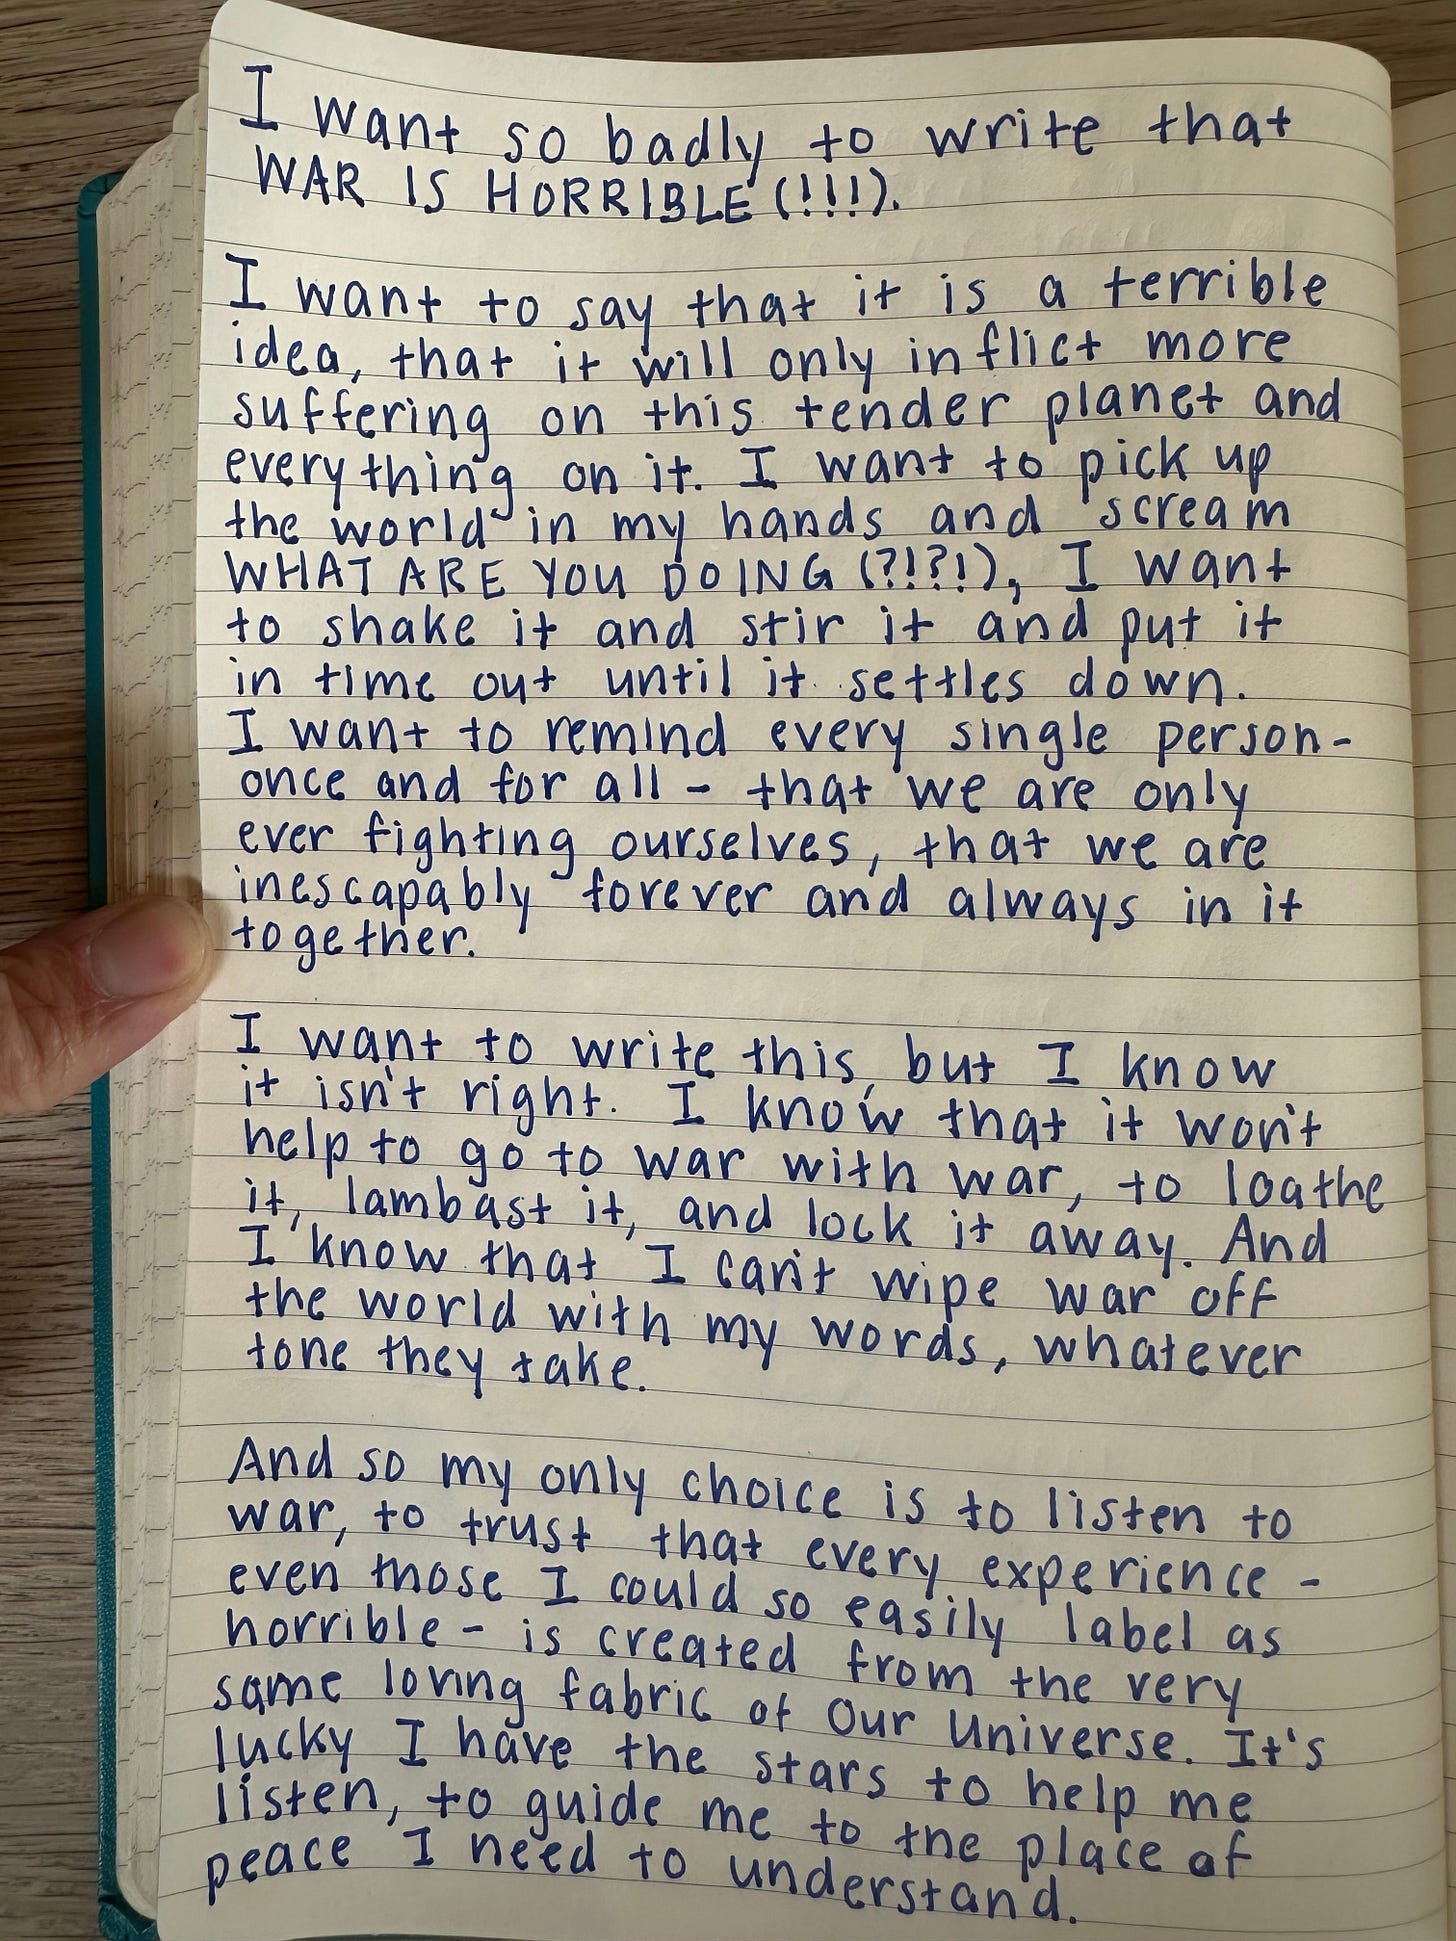 I want so badly to write that
WAR IS HORRIBLE (!!!).
I want to say that it is a terrible
idea, that it will only inflict more
suffering on this tender planet and
everything on it. I want to pick up
the world in my hands and scream
WHAT ARE YOU DOING (?!?!), I want
to shake it and stir it and put it
in time out until it settles down.
I want to remind every single person -
once and for all - that we are only
ever fighting ourselves, that we are
inescapably forever and always in it
together.
I want to write this, but I know
it isn't right. I know that it won't
help to go to war with war, to loathe
it, lambast it, and lock it away. And
I know that I can't wipe war off
the world with my words, whatever
tone they take.
And so my only choice is to listen to
war, to trust that every experience -
even those I could so easily label as
horrible - is created from the very
same loving fabric of Our Universe. It's
lucky I have the stars to help me
listen, to guide me to the place of
peace I need to understand.